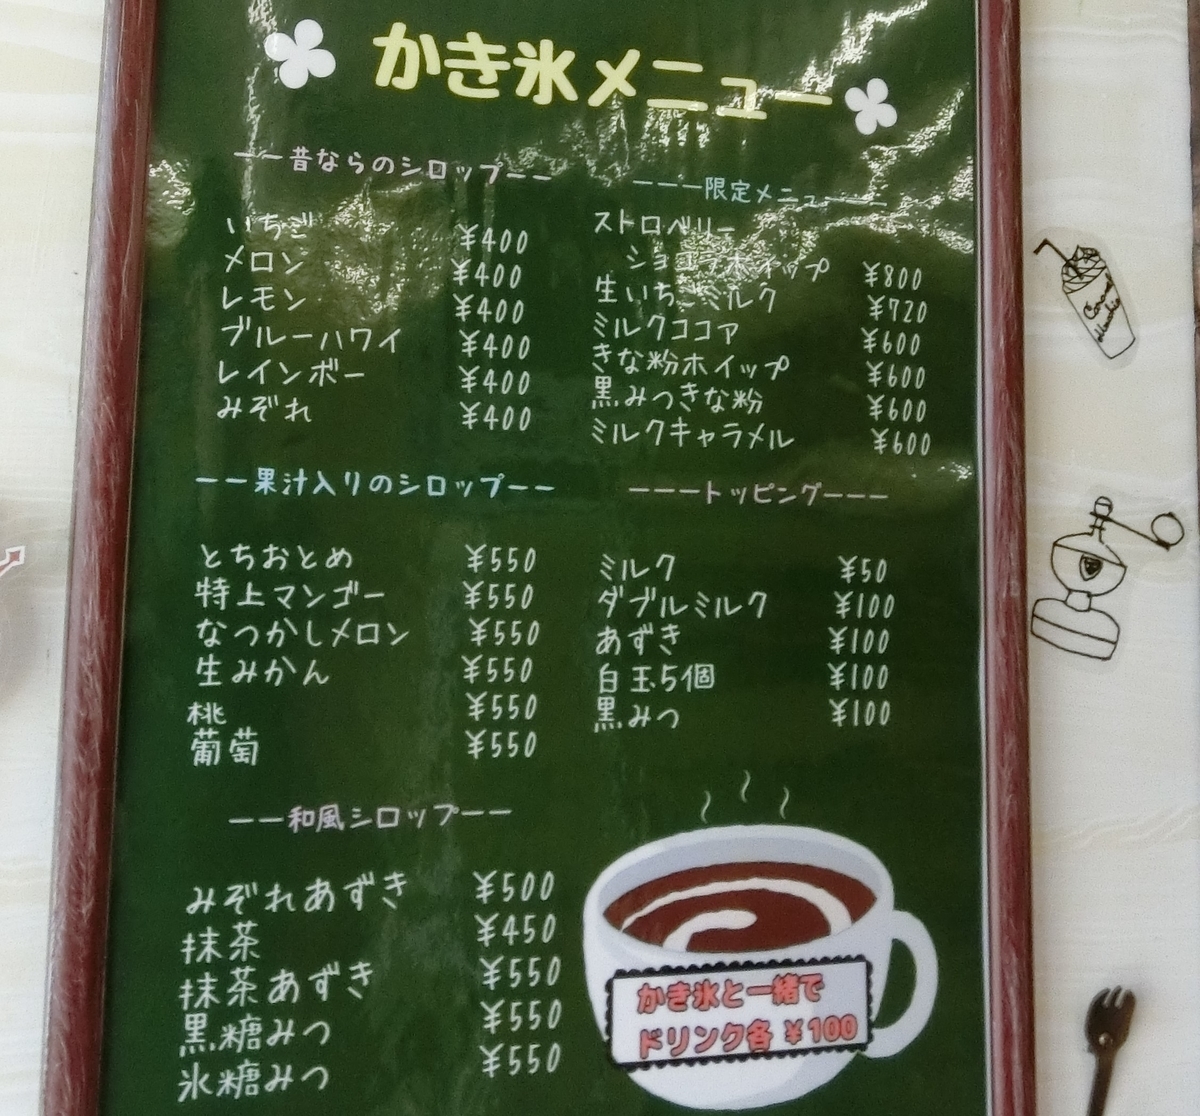 かき氷メニュー
ーー昔ならのシロップーー
いちご ¥400
メロン ¥400
レモン ¥400
ブルーハワイ ¥400
レインボー ¥400
みぞれ ¥400
ーー果汁入りのシロップーー
とちおとめ ¥550
特上マンゴー ¥550
なつかしメロン ¥550
生みかん ¥550
桃 ¥550
葡萄 ¥550
ーー和風シロップーー
みぞれあずき ¥500
抹茶 ¥450
抹茶あずき ¥550
黒糖みつ ¥550
氷糖みつ ¥550
ーーー限定メニューーーー
ストロベリー
ショコラホイップ ¥800
生いちごミルク ¥720
ミルクココア ¥600
きな粉ホイップ ¥600
黒みつきな粉 ¥600
ミルクキャラメル ¥600
ーーートッピングーーー
ミルク ¥50
ダブルミルク ¥100
あずき ¥100
白玉5個 ¥100
黒みつ ¥100
かき氷と一緒で
ドリンク各 ¥100